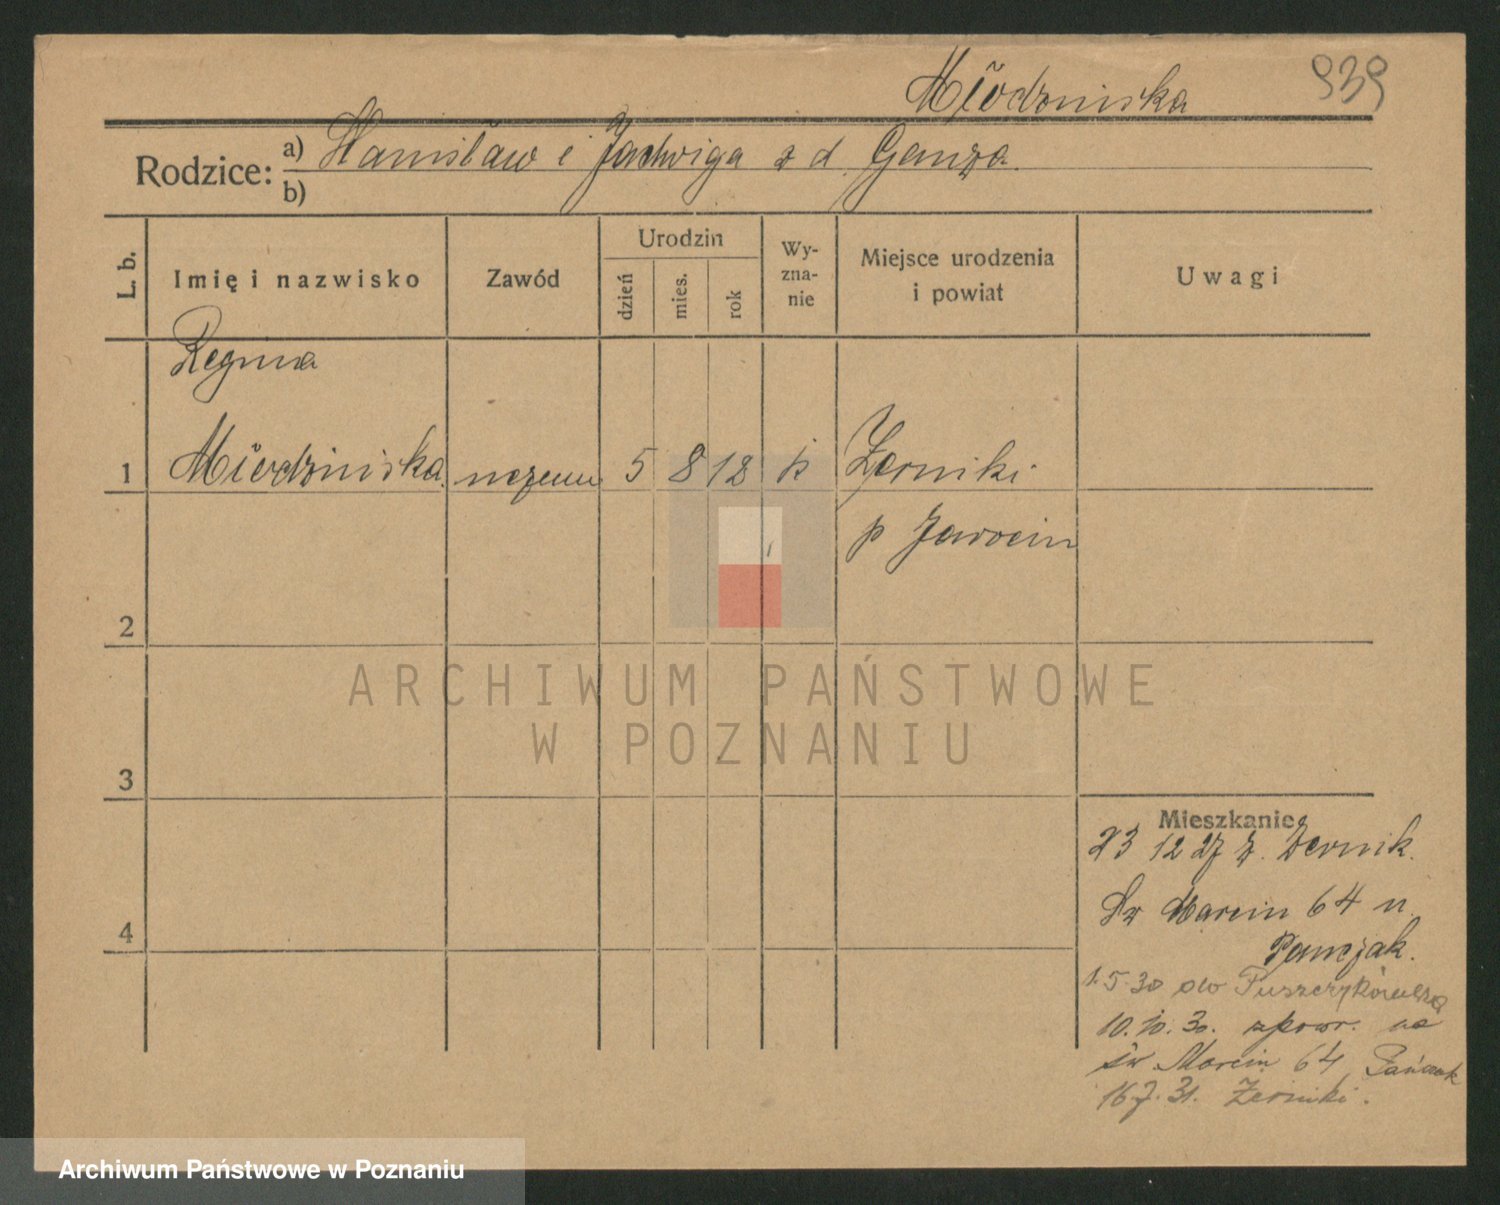 Miodzińska 939
Rodzice: a) Stanisław i Jadwiga z d. Ganza
b)
L. b. Imię i nazwisko Zawód Urodzin dzień mies. rok Wyznanie Miejsce urodzenia i powiat Uwagi
Regina
1 Miodzińska uczenn 5 8 12 k Żerniki
p Jarocin
2
ARCHIWUM PAŃSTWOWE
W POZNANIU
3
Mieszkanie
23 12 27 z. Żernik.
Św Marcin 64 u
4
Pańcjak.
1.5.30 do Puszczykówka
10.10.30. zpowr. na
św. Marcin 64
16.7.31. Żerniki.
Archiwum Państwowe w Poznaniu